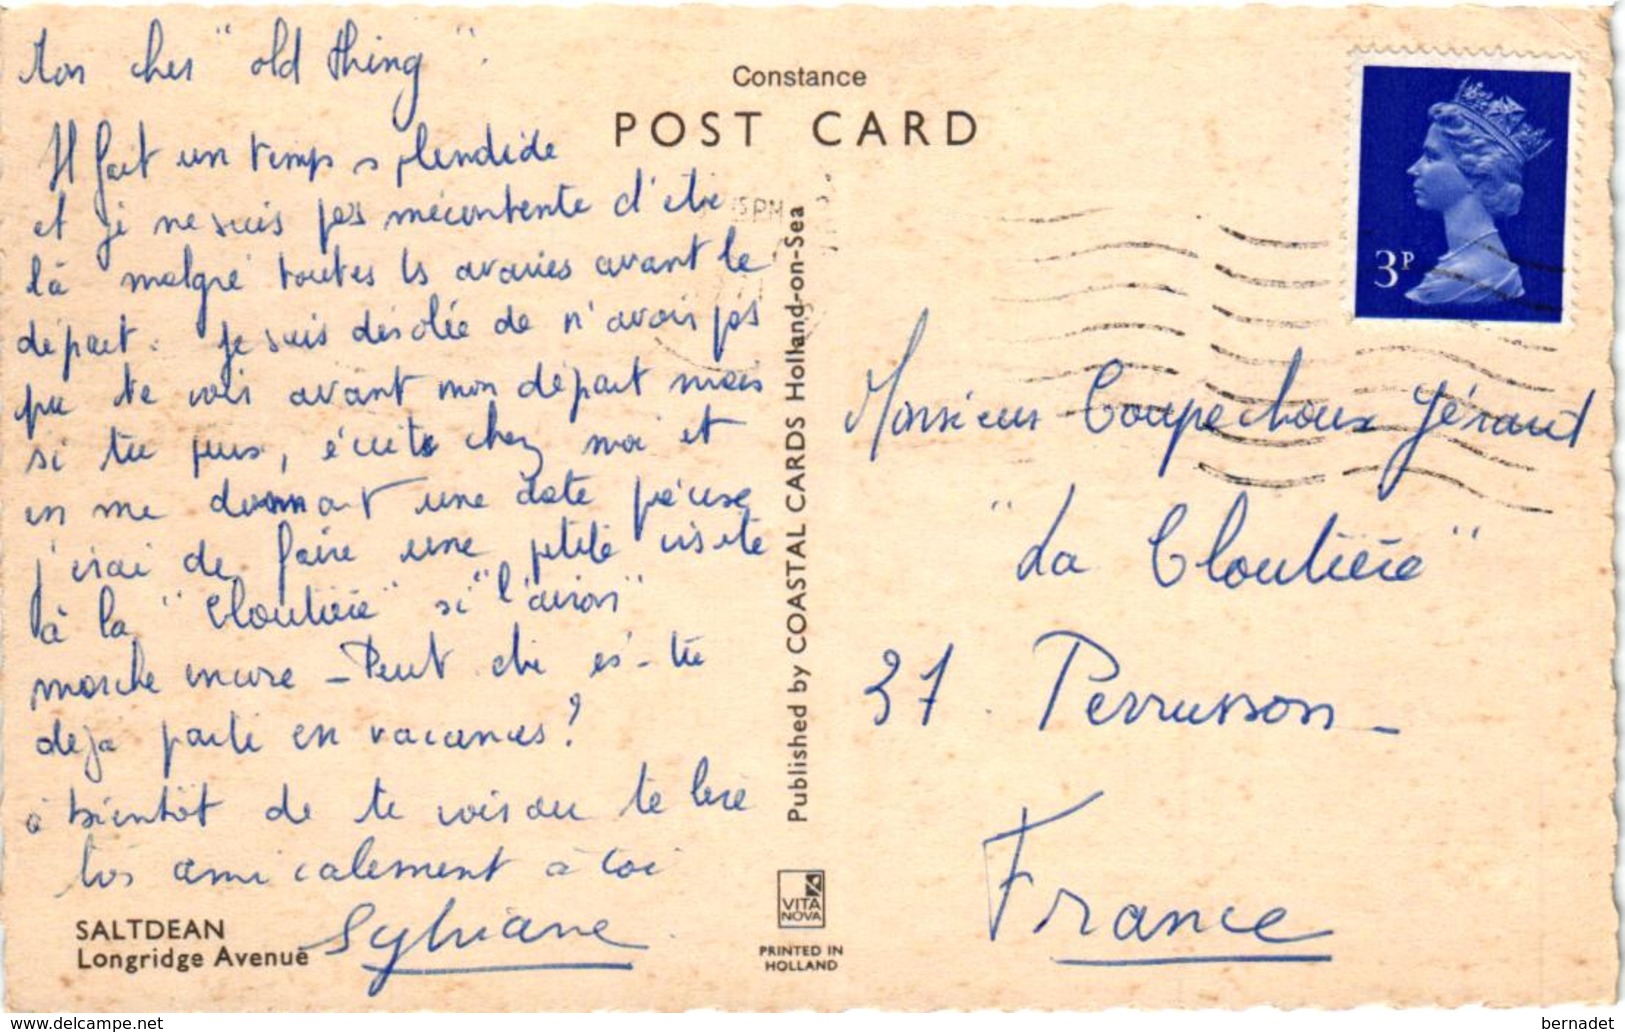 Mon cher "old thing".
Il fait un temps splendide
et je ne suis pas mécontente d'être
là malgré toutes les avaries avant le
départ. Je suis désolée de n'avoir pas
pu te voir avant mon départ mais
si tu peux, écrits chez moi et
en me donnant une date précise
j'irai de faire une petite visite
à la "Cloutière" si "l'avion"
marche encore - Peut être es-tu
déjà parti en vacances?
à bientôt de te voir ou te lire
très amicalement à toi
Sylviane
SALTDEAN
Longridge Avenue
Constance
POST CARD
15PM
Published by COASTAL CARDS Holland-on-Sea
VITA
NOVA
PRINTED IN
HOLLAND
3P
Monsieur Coupechoux Gérard
"La Cloutière"
37. Perrusson -
France
www.delcampe.net
bernadet